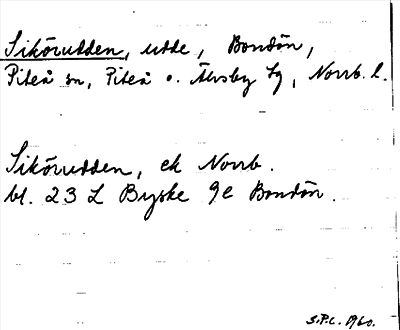 Sikörudden, udde, Bondön,
Piteå sn, Piteå o. Älvsby tg, Norrb. l.
Sikörudden, ek Norrb.
bl. 23 L Byske 9e Bondön.
S.P.L. 1960.